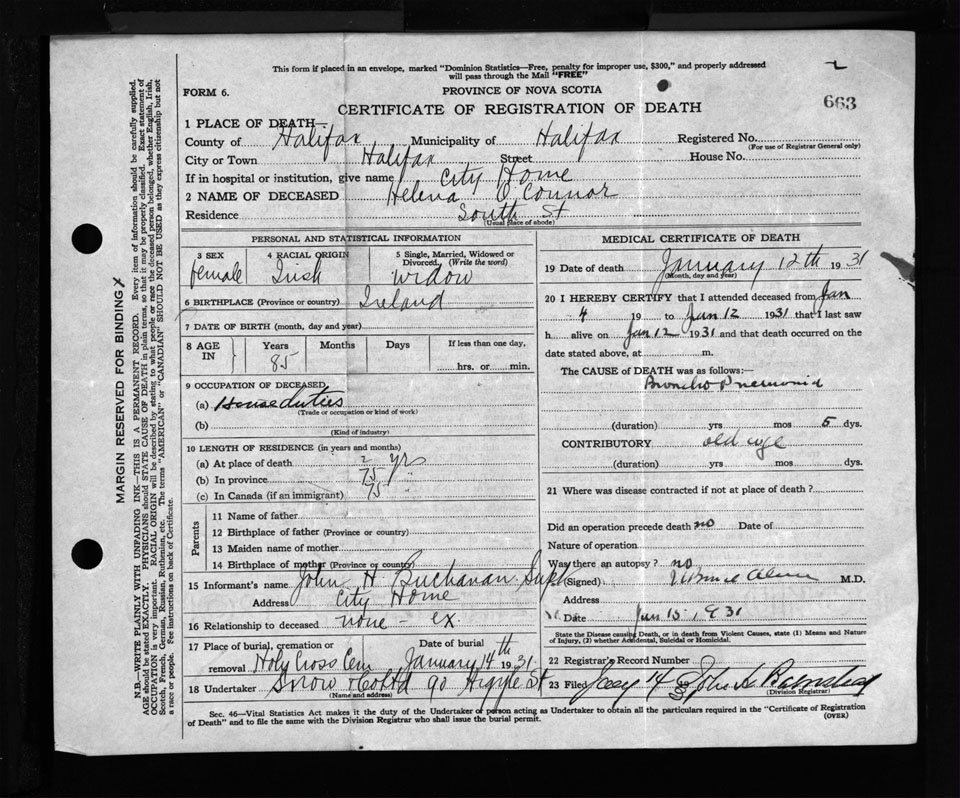 This form if placed in an envelope, marked "Dominion Statistics—Free, penalty for improper use, $300," and properly addressed
will pass through the Mail "FREE"
FORM 6.
PROVINCE OF NOVA SCOTIA
663
CERTIFICATE OF REGISTRATION OF DEATH
1 PLACE OF DEATH—
County of Halifax Municipality of Halifax Registered No.
(For use of Registrar General only)
City or Town Halifax Street House No.
If in hospital or institution, give name City Home
2 NAME OF DECEASED Helena O'Connor
Residence South St
(Usual place of abode)
PERSONAL AND STATISTICAL INFORMATION
3 SEX 4 RACIAL ORIGIN 5 Single, Married, Widowed or
Divorced. (Write the word)
female Irish widow
6 BIRTHPLACE (Province or country) Ireland
7 DATE OF BIRTH (month, day and year)
8 AGE IN Years Months Days If less than one day,
85 hrs. or min.
9 OCCUPATION OF DECEASED
(a) House duties
(Trade or occupation or kind of work)
(b)
(Kind of industry)
10 LENGTH OF RESIDENCE (in years and months)
(a) At place of death 2 yrs
(b) In province 75
(c) In Canada (if an immigrant) 75
Parents
11 Name of father
12 Birthplace of father (Province or country)
13 Maiden name of mother
14 Birthplace of mother (Province or country)
15 Informant's name John H Buchanan Supt
Address City Home
16 Relationship to deceased none - ex.
17 Place of burial, cremation or Date of burial
removal Holy Cross Cem January 14th 1931
18 Undertaker Snow & Co Ltd 90 Argyle St
(Name and address)
MEDICAL CERTIFICATE OF DEATH
19 Date of death January 12th 1931
(Month, day and year)
20 I HEREBY CERTIFY that I attended deceased from Jan
4 19 to Jan 12 1931 that I last saw
h alive on Jan 12 1931 and that death occurred on the
date stated above, at m.
The CAUSE of DEATH was as follows:—
Broncho Pneumonia
(duration) yrs mos 5 dys.
CONTRIBUTORY old age
(duration) yrs mos dys.
21 Where was disease contracted if not at place of death?
Did an operation precede death no Date of
Nature of operation
Was there an autopsy? no
(Signed) M.D.
Address
Date Jan 13 1931
State the Disease causing Death, or in death from Violent Causes, state (1) Means and Nature
of Injury, (2) whether Accidental, Suicidal or Homicidal.
22 Registrar's Record Number
23 Filed Jany 14 John
(Division Registrar)
Sec. 46—Vital Statistics Act makes it the duty of the Undertaker or person acting as Undertaker to obtain all the particulars required in the "Certificate of Registration
of Death" and to file the same with the Division Registrar who shall issue the burial permit.
(OVER)
MARGIN RESERVED FOR BINDING
N.B.—WRITE PLAINLY WITH UNFADING INK—THIS IS A PERMANENT RECORD. Every item of information should be carefully supplied.
AGE should be stated EXACTLY. PHYSICIANS should STATE CAUSE OF DEATH in plain terms, so that it may be properly classified. Exact statement of
OCCUPATION is very important. RACIAL ORIGIN will be described by stating to what people or race the deceased person belonged, whether English, Irish,
Scotch, French, German, Russian, Ruthenian, etc. The terms "AMERICAN" or "CANADIAN" SHOULD NOT BE USED as they express citizenship but not
a race or people. See instructions on back of Certificate.